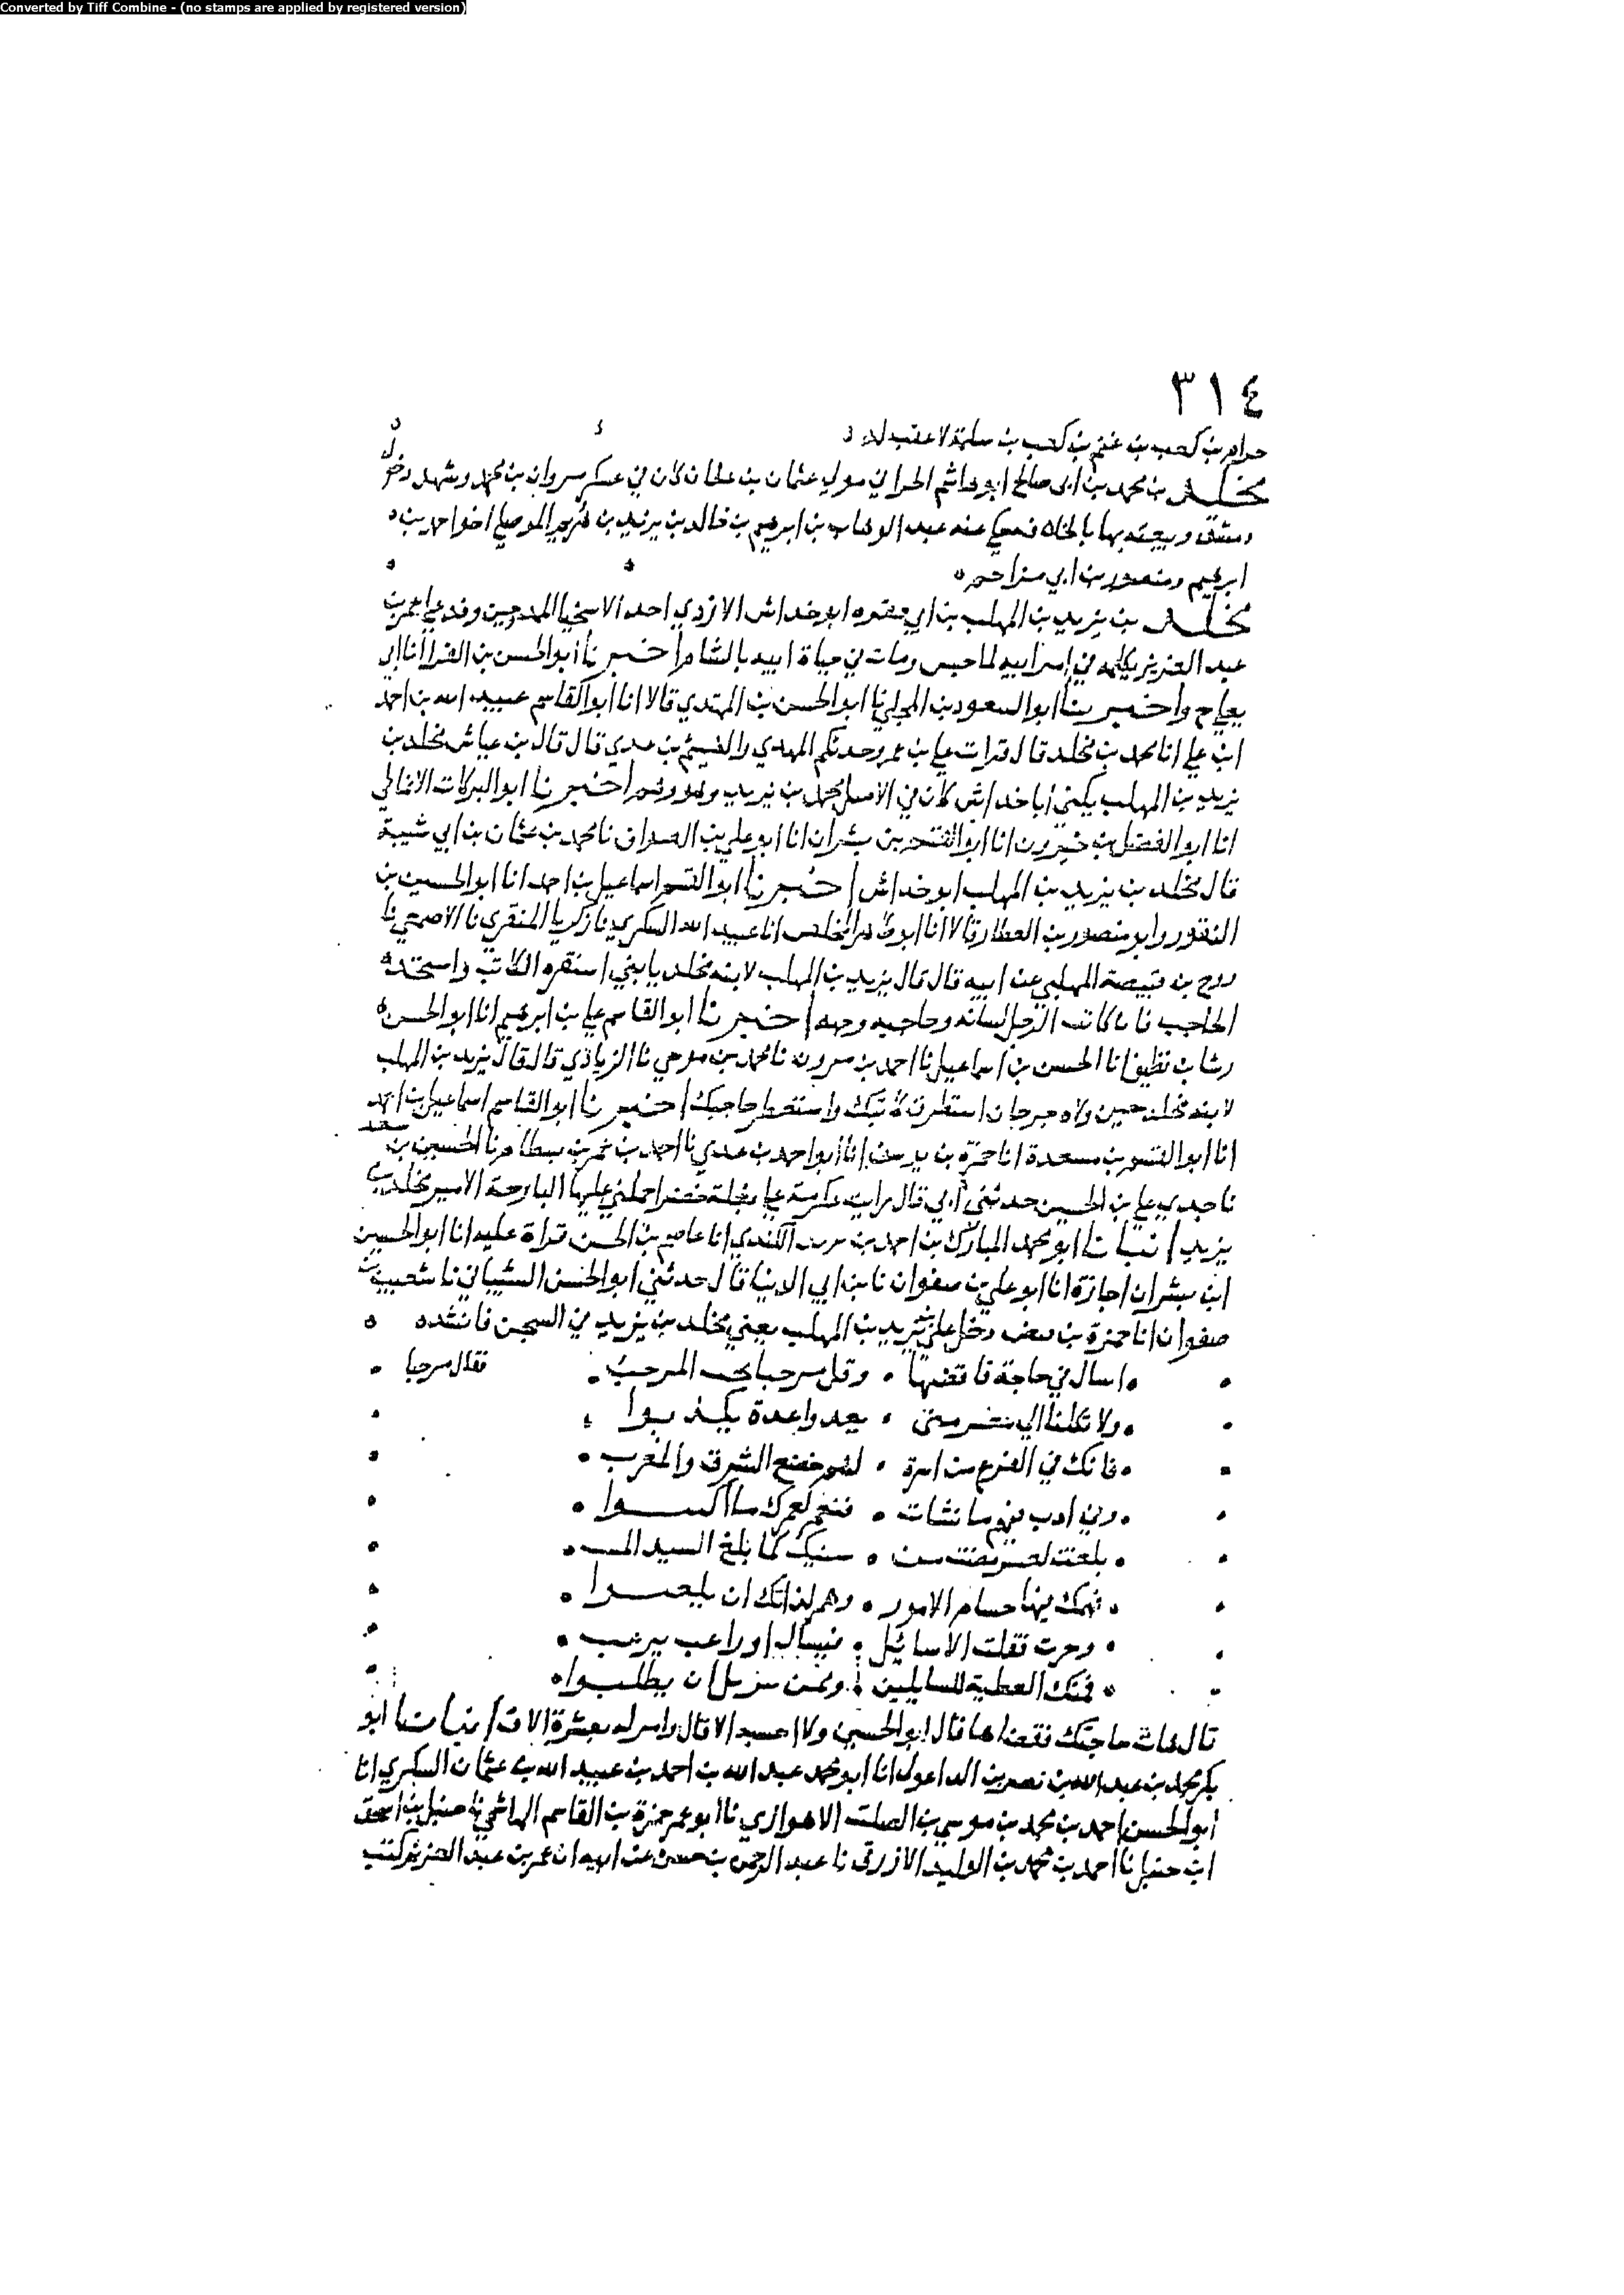 Converted by Tiff Combine - (no stamps are applied by registered version)
٣١٤
حرام بن كعب بن غنم بن كعب بن سلمة لا عقب له
مخلد بن محمد بن ابي صالح ابو هاشم الحراني مولي عثمان بن عفان كان في عسكر مروان بن محمد وشهد دخول
دمشق وبيعته بها بالخلافه حكي عنه عبد الوهاب بن ابرهيم بن خالد بن يزيد بن هريم الموصلي اخو احمد بن
ابرهيم ومنصور بن ابي مزاحم
مخلد بن يزيد بن المهلب بن ابي صفره ابو خداش الازدي احد الاسخيا الممدوحين وفد علي عمر بن
عبد العزيز يكلمه في امر ابيه لما حبس ومات في حياة ابيه بالشام اخبرنا ابو الحسن بن الفرا انا ابي
يعلي ح واخبرنا ابو السعود بن المجلي نا ابو الحسن بن المهتدي قالا انا ابو القاسم عبيد الله بن احمد
ابن علي انا محمد بن مخلد قال قرات علي بن عمرو حدثكم الهيثم بن عدي قال قال بن عياش مخلد بن
يزيد بن المهلب يكني ابا خداش كان في الاصل محمد بن يزيد وهو وهم اخبرنا ابو البركات الانماطي
انا ابو الفضل بن خيرون انا ابو الفتح بن بشران انا ابو علي بن الصواف نا محمد بن عثمان بن ابي شيبة
قال مخلد بن يزيد بن المهلب ابو خداش اخبرنا ابو القسم اسماعيل بن احمد انا ابو الحسين بن
النقور وابو منصور بن العطار قالا انا ابو طاهر المخلص انا عبيد الله السكري نا زكريا المنقري نا الاصمعي نا
روح بن قبيصة المهلبي عن ابيه قال قال يزيد بن المهلب لابنه مخلد يا بني استفره الكاتب واستجد
الحاجب فان كاتب الرجل لسانه وحاجبه وجهه اخبرنا ابو القاسم علي بن ابرهيم انا ابو الحسن
رشا بن نظيف انا الحسن بن اسماعيل نا احمد بن مروان نا محمد بن موسي نا الزيادي قال قال يزيد بن المهلب
لابنه مخلد حين ولاه جرجان استظرف كاتبك واستعطر حاجبك اخبرنا ابو القاسم اسماعيل بن احمد
انا ابو القسم بن مسعدة انا حمزة بن يوسف انا ابو احمد بن عدي نا احمد بن عمر بن بسطام نا الحسين بن سعد
نا جدي علي بن الحسين حدثني ابي قال رايت عكرمة علي بغلة خضرا حملني عليها البارحة الامير مخلد بن
يزيد انبانا ابو محمد المبارك بن احمد بن الكندي انا عاصم بن الحسن قراة عليه انا ابو الحسين
ابن بشران اجازة انا ابو علي بن صفوان نا بن ابي الدنيا قال حدثني ابو الحسن الشيباني نا شعيب بن
صفوان انا حمزة بن بيض دخل علي يزيد بن المهلب يعني مخلد بن يزيد في السجن فانشده
اسال في حاجة فاقضها وقل مرحبا يجب المرحب فقال مرحبا
ولا تكلنا الي معشر متي يعدوا عدة يكذبوا
فانك في الفرع من اسرة لهم خضع الشرق والمغرب
وفي ادب فيهم ما نشات فنعم لعمرك ما ادبوا
بلغت لعشر مضت من سنيك كما يبلغ السيد
فهمك فيها جسام الامور وهم لداتك ان يلعبوا
وجدت فقلت الا سائل فيسال او راغب يرغب
فمنك العطية للسايلين وممن ان يطلبوا
قال هات حاجتك فقضاها قال ابو الحسين ولا احسبه الا قال وامر له بعشرة الاف انبانا ابو
بكر محمد بن عبد الله بن نصر بن الداعول انا ابو محمد عبد الله بن احمد بن عبيد الله بن عثمان السكري انا
ابو الحسن احمد بن محمد بن موسي بن الصلت الاهوازي نا ابو عمر حمزة بن القاسم الهاشمي نا حنبل بن اسحق
ابن حنبل نا احمد بن محمد بن الوليد الازرقي نا عبد الرحمن بن حسن عن ابيه ان عمر بن عبد العزيز كتب